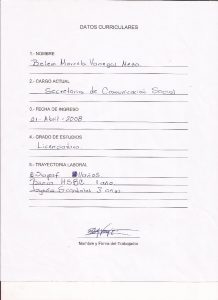 DATOS CURRICULARES
1.- NOMBRE
Belem Marcela Vanegas Mena
2.- CARGO ACTUAL
Secretaria de Comunicación Social
3.- FECHA DE INGRESO
21- Abril - 2008
4.- GRADO DE ESTUDIOS
Licenciatura
5.- TRAYECTORIA LABORAL
años
HSBC 1 año
3 años
Nombre y Firma del Trabajador